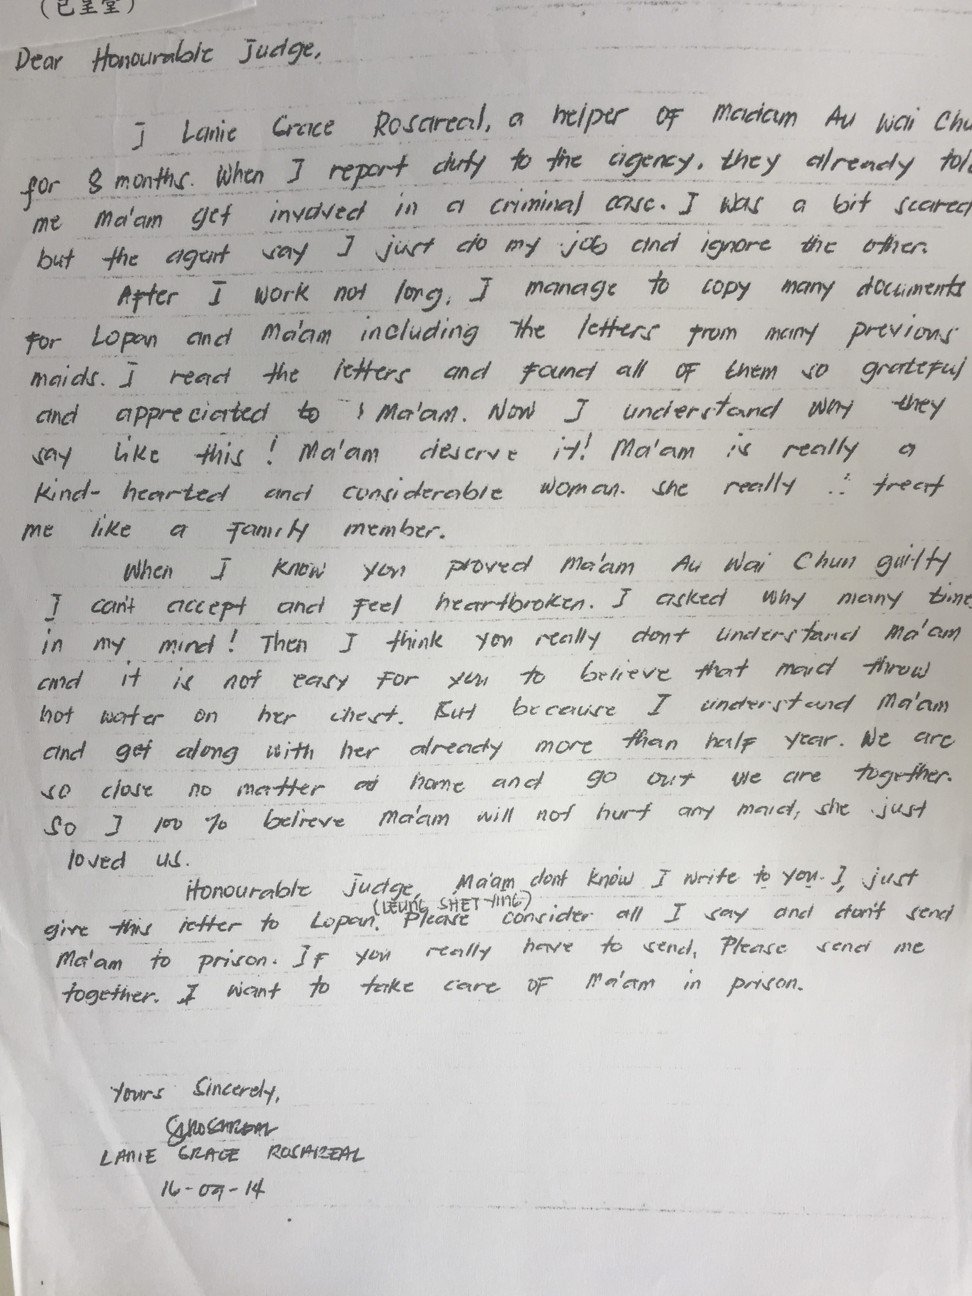 (已呈堂)
Dear Honourable Judge,
I Lanie Grace Rosareal, a helper of Madam Au Wai Chu
for 8 months. When I report duty to the agency. they already tol
me Ma'am get involved in a criminal case. I was a bit scared
but the agent say I just do my job and ignore the other.
After I work not long, I manage to copy many documents
for Lopan and Ma'am including the letters from many previous
maids. I read the letters and found all of them so grateful
and appreciated to Ma'am. Now I understand why they
say like this! Ma'am deserve it! Ma'am is really a
kind-hearted and considerable woman. She really treat
me like a family member.
When I know you proved Ma'am Au Wai Chun guilty
I can't accept and feel heartbroken. I asked why many time
in my mind! Then I think you really dont understand Ma'am
and it is not easy for you to believe that maid throw
hot water on her chest. But because I understand Ma'am
and get along with her already more than half year. We are
so close no matter at home and go out we are together.
So I 100% believe Ma'am will not hurt any maid, she just
loved us.
Honourable judge, Ma'am dont know I write to you. I, just
(LEUNG SHET YING)
give this letter to Lopan. Please consider all I say and don't send
Ma'am to prison. If you really have to send, Please send me
together. I want to take care of Ma'am in prison.
Yours Sincerely,
LANIE GRACE ROSAREAL
16-09-14